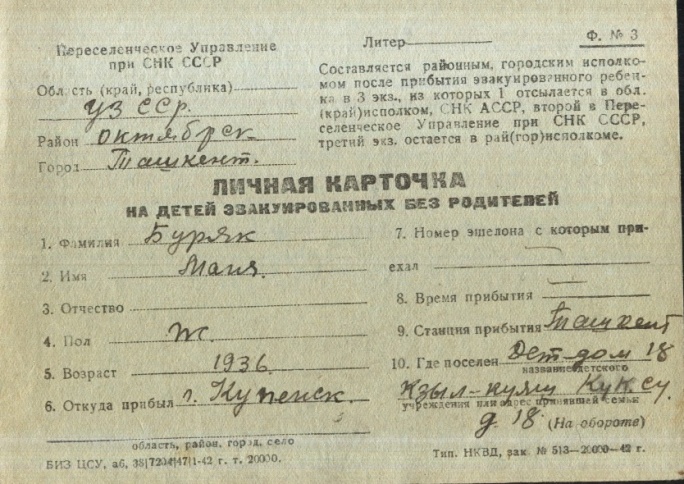 Переселенческое Управление
при СНК СССР
Область (край, республика)
Уз ССР.
Район октябрьск
Город Ташкент.
Литер
Ф. № 3
Составляется районным, городским исполко-
мом после прибытия эвакуированного ребен-
ка в 3 экз., из которых 1 отсылается в обл.
(край)исполком, СНК АССР, второй в Пере-
селенческое Управление при СНК СССР,
третий экз. остается в рай(гор)исполкоме.
ЛИЧНАЯ КАРТОЧКА
НА ДЕТЕЙ ЭВАКУИРОВАННЫХ БЕЗ РОДИТЕЛЕЙ
1. Фамилия Буряк
2. Имя Маня.
3. Отчество
4. Пол Ж.
5. Возраст 1936.
6. Откуда прибыл г. Купенск.
область, район, город, село
БИЗ ЦСУ, аб, 38|7204|47|1-42 г. т. 20000.
7. Номер эшелона с которым при-
ехал
8. Время прибытия
9. Станция прибытия Ташкент
10. Где поселен Дет-дом 18
название детского
Кзыл-куяш Куксу.
учреждения или адрес принявшей семьи
д. 18 (На обороте)
Тип. НКВД, зак. № 513—20000—42 г.